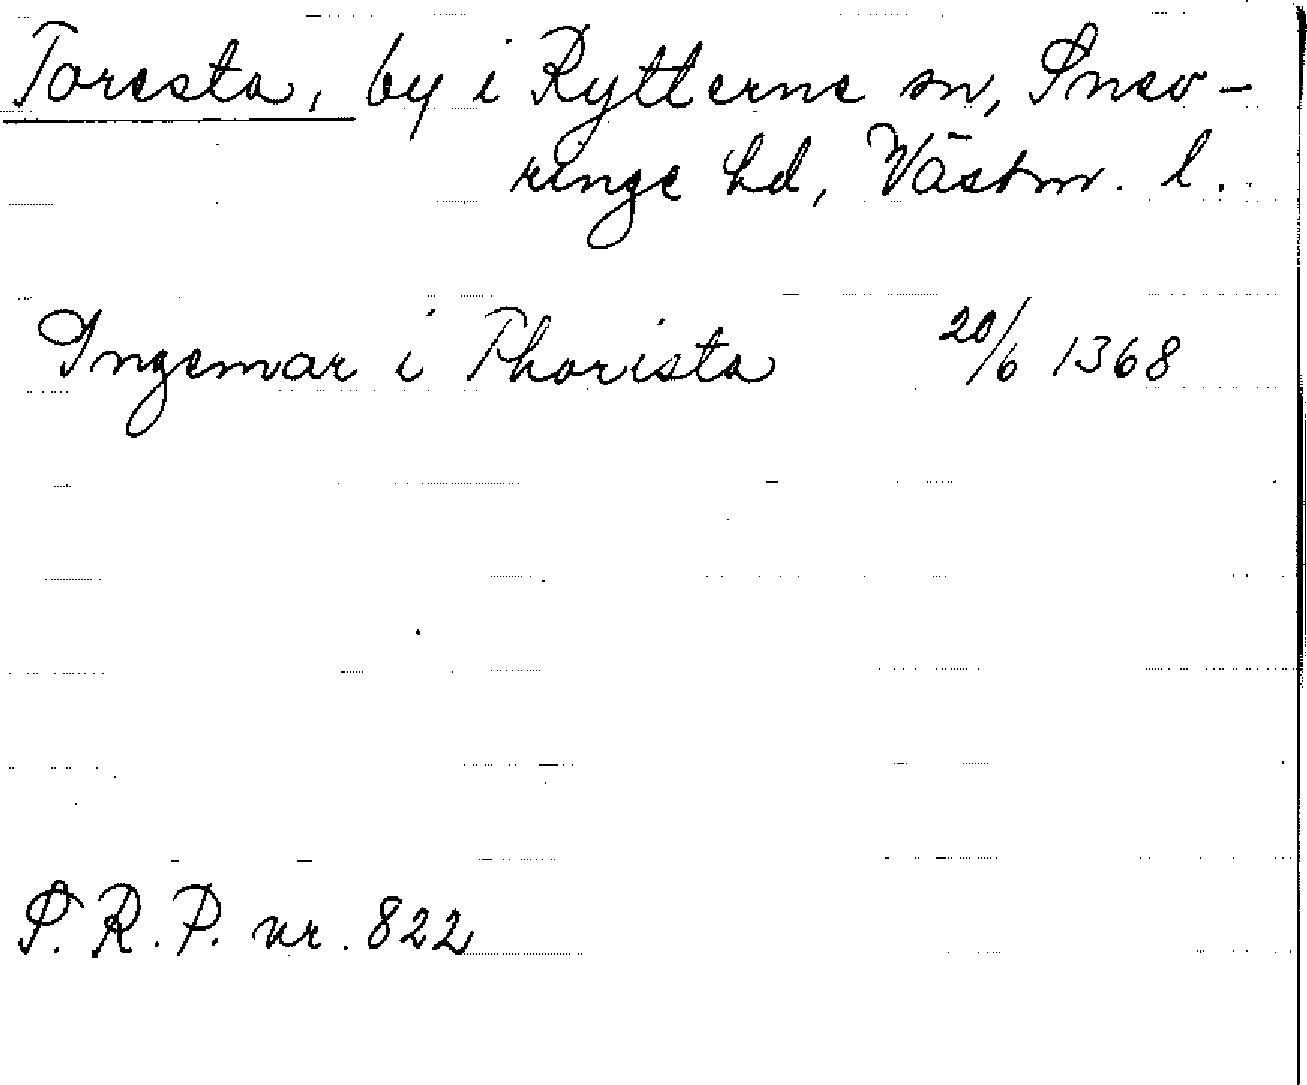 Toresta, by i Rytterne sn, Snev-
ringe hd, Västm. l.
Ingemar i Thorista 20/6 1368
S. R. P. nr. 822